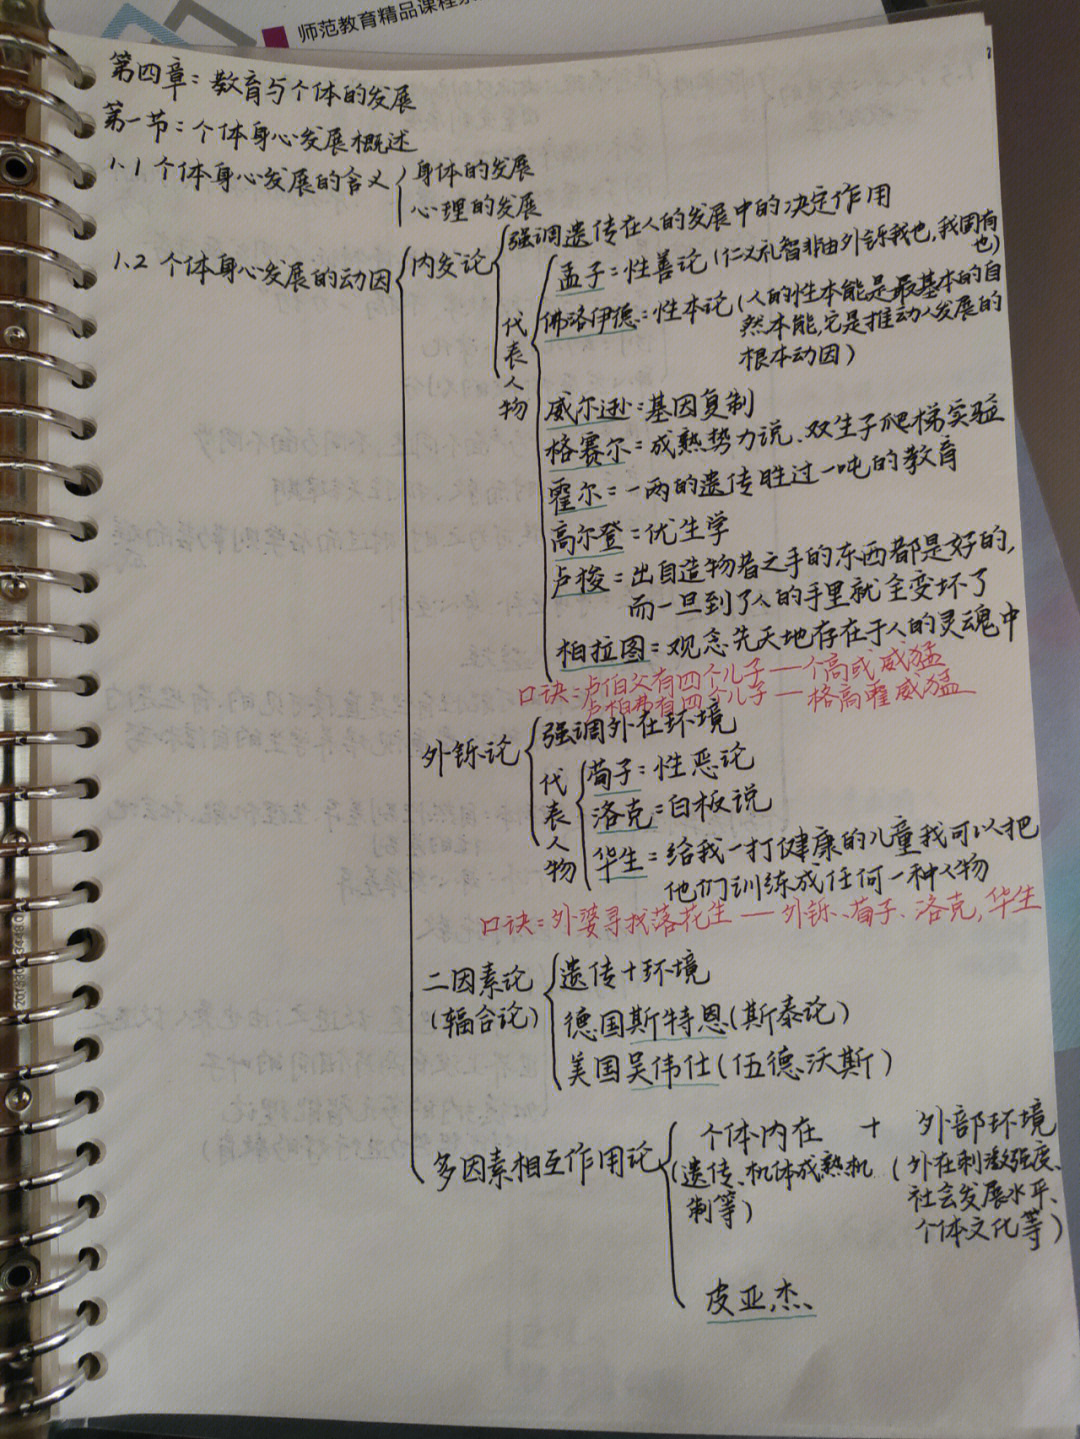 师范教育精品课程
第四章：教育与个体的发展
第一节：个体身心发展概述
1.1 个体身心发展的含义
身体的发展
心理的发展
1.2 个体身心发展的动因
内发论
强调遗传在人的发展中的决定作用
代表人物
孟子：性善论（仁义礼智非由外铄我也，我固有也）
佛洛伊德：性本论（人的性本能是最基本的自
然本能，它是推动人发展的
根本动因）
威尔逊：基因复制
格赛尔：成熟势力说、双生子爬梯实验
霍尔：一两的遗传胜过一吨的教育
高尔登：优生学
卢梭：出自造物者之手的东西都是好的，
而一旦到了人的手里就全变坏了
柏拉图：观念先天地存在于人的灵魂中
口诀：卢伯父有四个儿子 — 个高或威猛
卢柏弗有四个儿子 — 格高霍威猛
外铄论
强调外在环境
代表人物
荀子：性恶论
洛克：白板说
华生：给我一打健康的儿童我可以把
他们训练成任何一种人物
口诀：外婆寻找落花生 — 外铄、荀子、洛克，华生
二因素论
（辐合论）
遗传+环境
德国斯特恩（斯泰论）
美国吴伟仕（伍德沃斯）
多因素相互作用论
个体内在 + 外部环境
（遗传、机体成熟机
制等）
（外在刺激强度、
社会发展水平、
个体文化等）
皮亚杰、